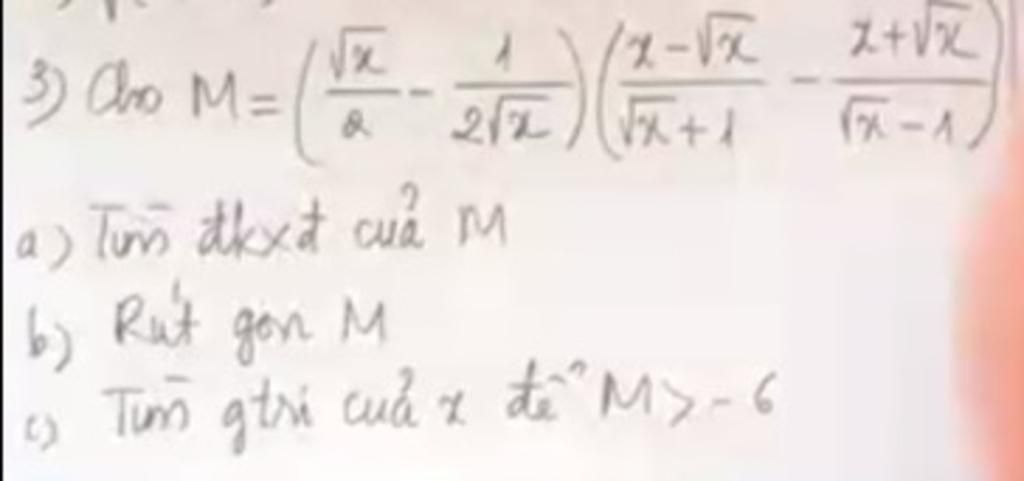 3) Cho M = (√x/2 - 1/2√x)(x-√x/√x+1 - x+√x/√x-1)
a) Tìm đkxđ của M
b) Rút gọn M
c) Tìm gtri của x để M > -6